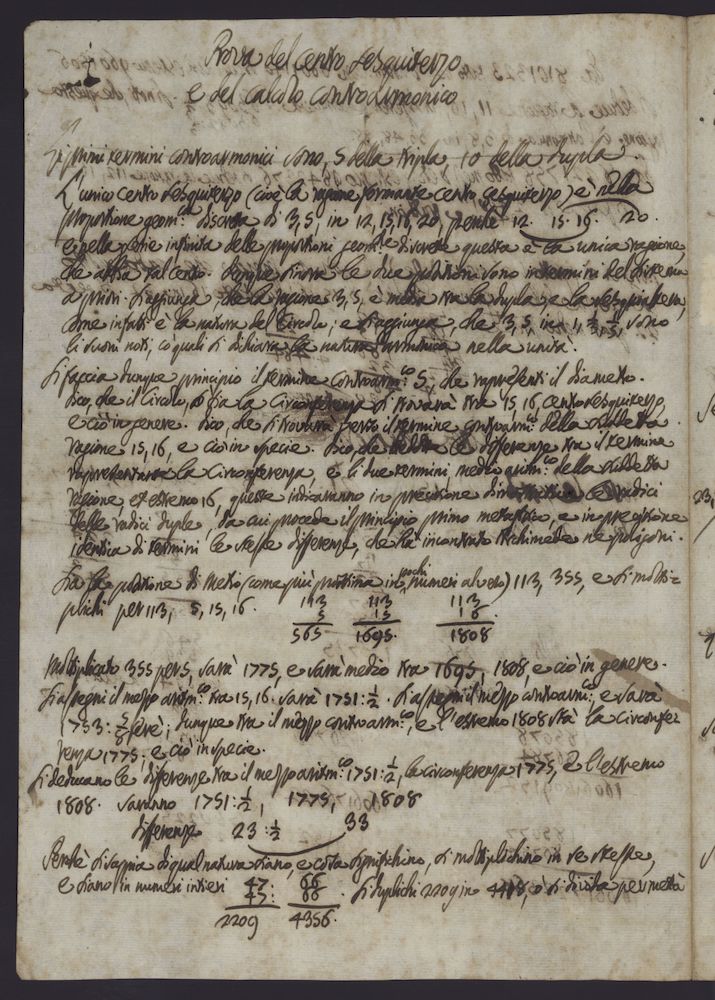 Prova del centro sesquiterzo
e del calcolo contrarmonico
I primi termini contrarmonici sono, 5 della tripla, 10 della dupla.
L'unico centro sesquiterzo (cioè la ragione formante centro sesquiterzo) è nella
proporzione geom:ca discreta di 3, 5, in 12, 15, 16, 20, perché 12. 15. 16. 20.
e nella serie infinita delle proporzioni geom:e discrete questa è la unica ragione,
che abbia tal centro. Dunque sinora le due posizioni sono in termini del sistema
a priori. Si aggiunga, che la ragione 3, 5, è media tra la dupla, e la sesquialtera,
come infatti è la natura del Circolo; e si aggiunga, che 3, 5, in 1, 1/3, 1/5, sono
li suoni noti, co' quali si dichiara la natura armonica nella unità.
Si faccia dunque principio il termine contrarm:co 5, che rappresenti il diametro.
Dico, che il Circolo, o sia la Circonferenza si trovarà tra 15, 16 centro sesquiterzo,
e ciò in genere. Dico, che si trovarà presso il termine contrarm:co della suddetta
ragione 15, 16, e ciò in specie. Dico, che le differenze tra il termine
rappresentante la Circonferenza, e li due termini, medio aritm:co della suddetta
ragione, ed estremo 16, queste indicaranno in precisione le radici
delle radici duple, da cui procede il principio primo metafisico, e in precisione
identica di termini le stesse differenze, che ha incontrato Archimede ne' poligoni.
Sia la posizione di Mezio (come più prossima in pochi numeri al vero) 113, 355, e si molti=
plichi per 113, 5, 15, 16. 113 113 113
5 15 16
565 1695. 1808
Moltiplicato 355 per 5, sarà 1775, e sarà medio tra 1695, 1808, e ciò in genere.
Si assegni il mezzo aritm:co tra 15, 16. sarà 1751:1/2. Si assegni il mezzo contrarm:co, e sarà
1753: dunque tra il mezzo contrarm:co, e l'estremo 1808 sta la circonfe=
renza 1775. e ciò in specie.
Si deducano le differenze tra il mezzo aritm:co 1751:1/2, la circonferenza 1775, e l'estremo
1808. saranno 1751:1/2, 1775, 1808
differenze 23:1/2 33
Perché si sappia di qual natura siano, e cosa significhino, si moltiplichino in se stesse,
e siano in numeri intieri 47: 66 . Si duplichi 2209 in 4418, o si divida per metà
47: 66
2209 4356.